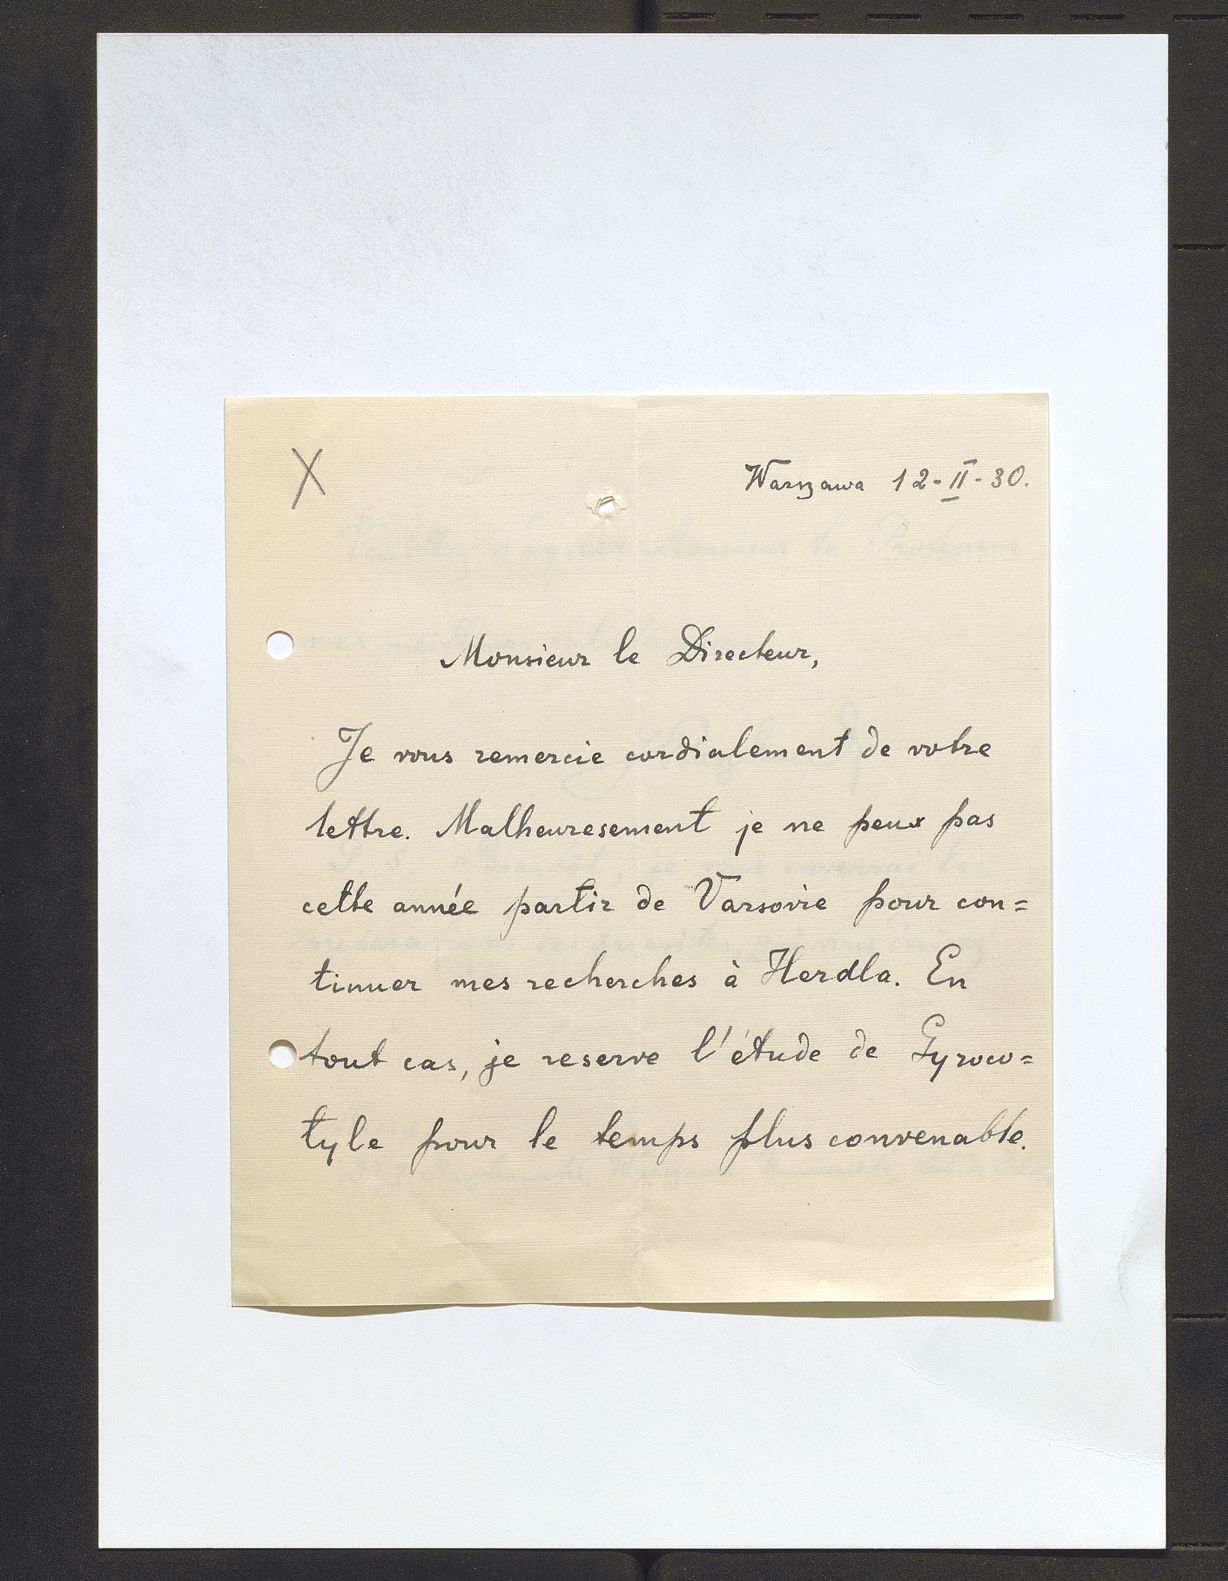 X
Warszawa 12-II-30.
Monsieur le Directeur,
Je vous remercie cordialement de votre
lettre. Malheuresement je ne peux pas
cette année partir de Varsovie pour con=
tinuer mes recherches à Herdla. En
tout cas, je reserve l'étude de Gyroco=
tyle pour le temps plus convenable.